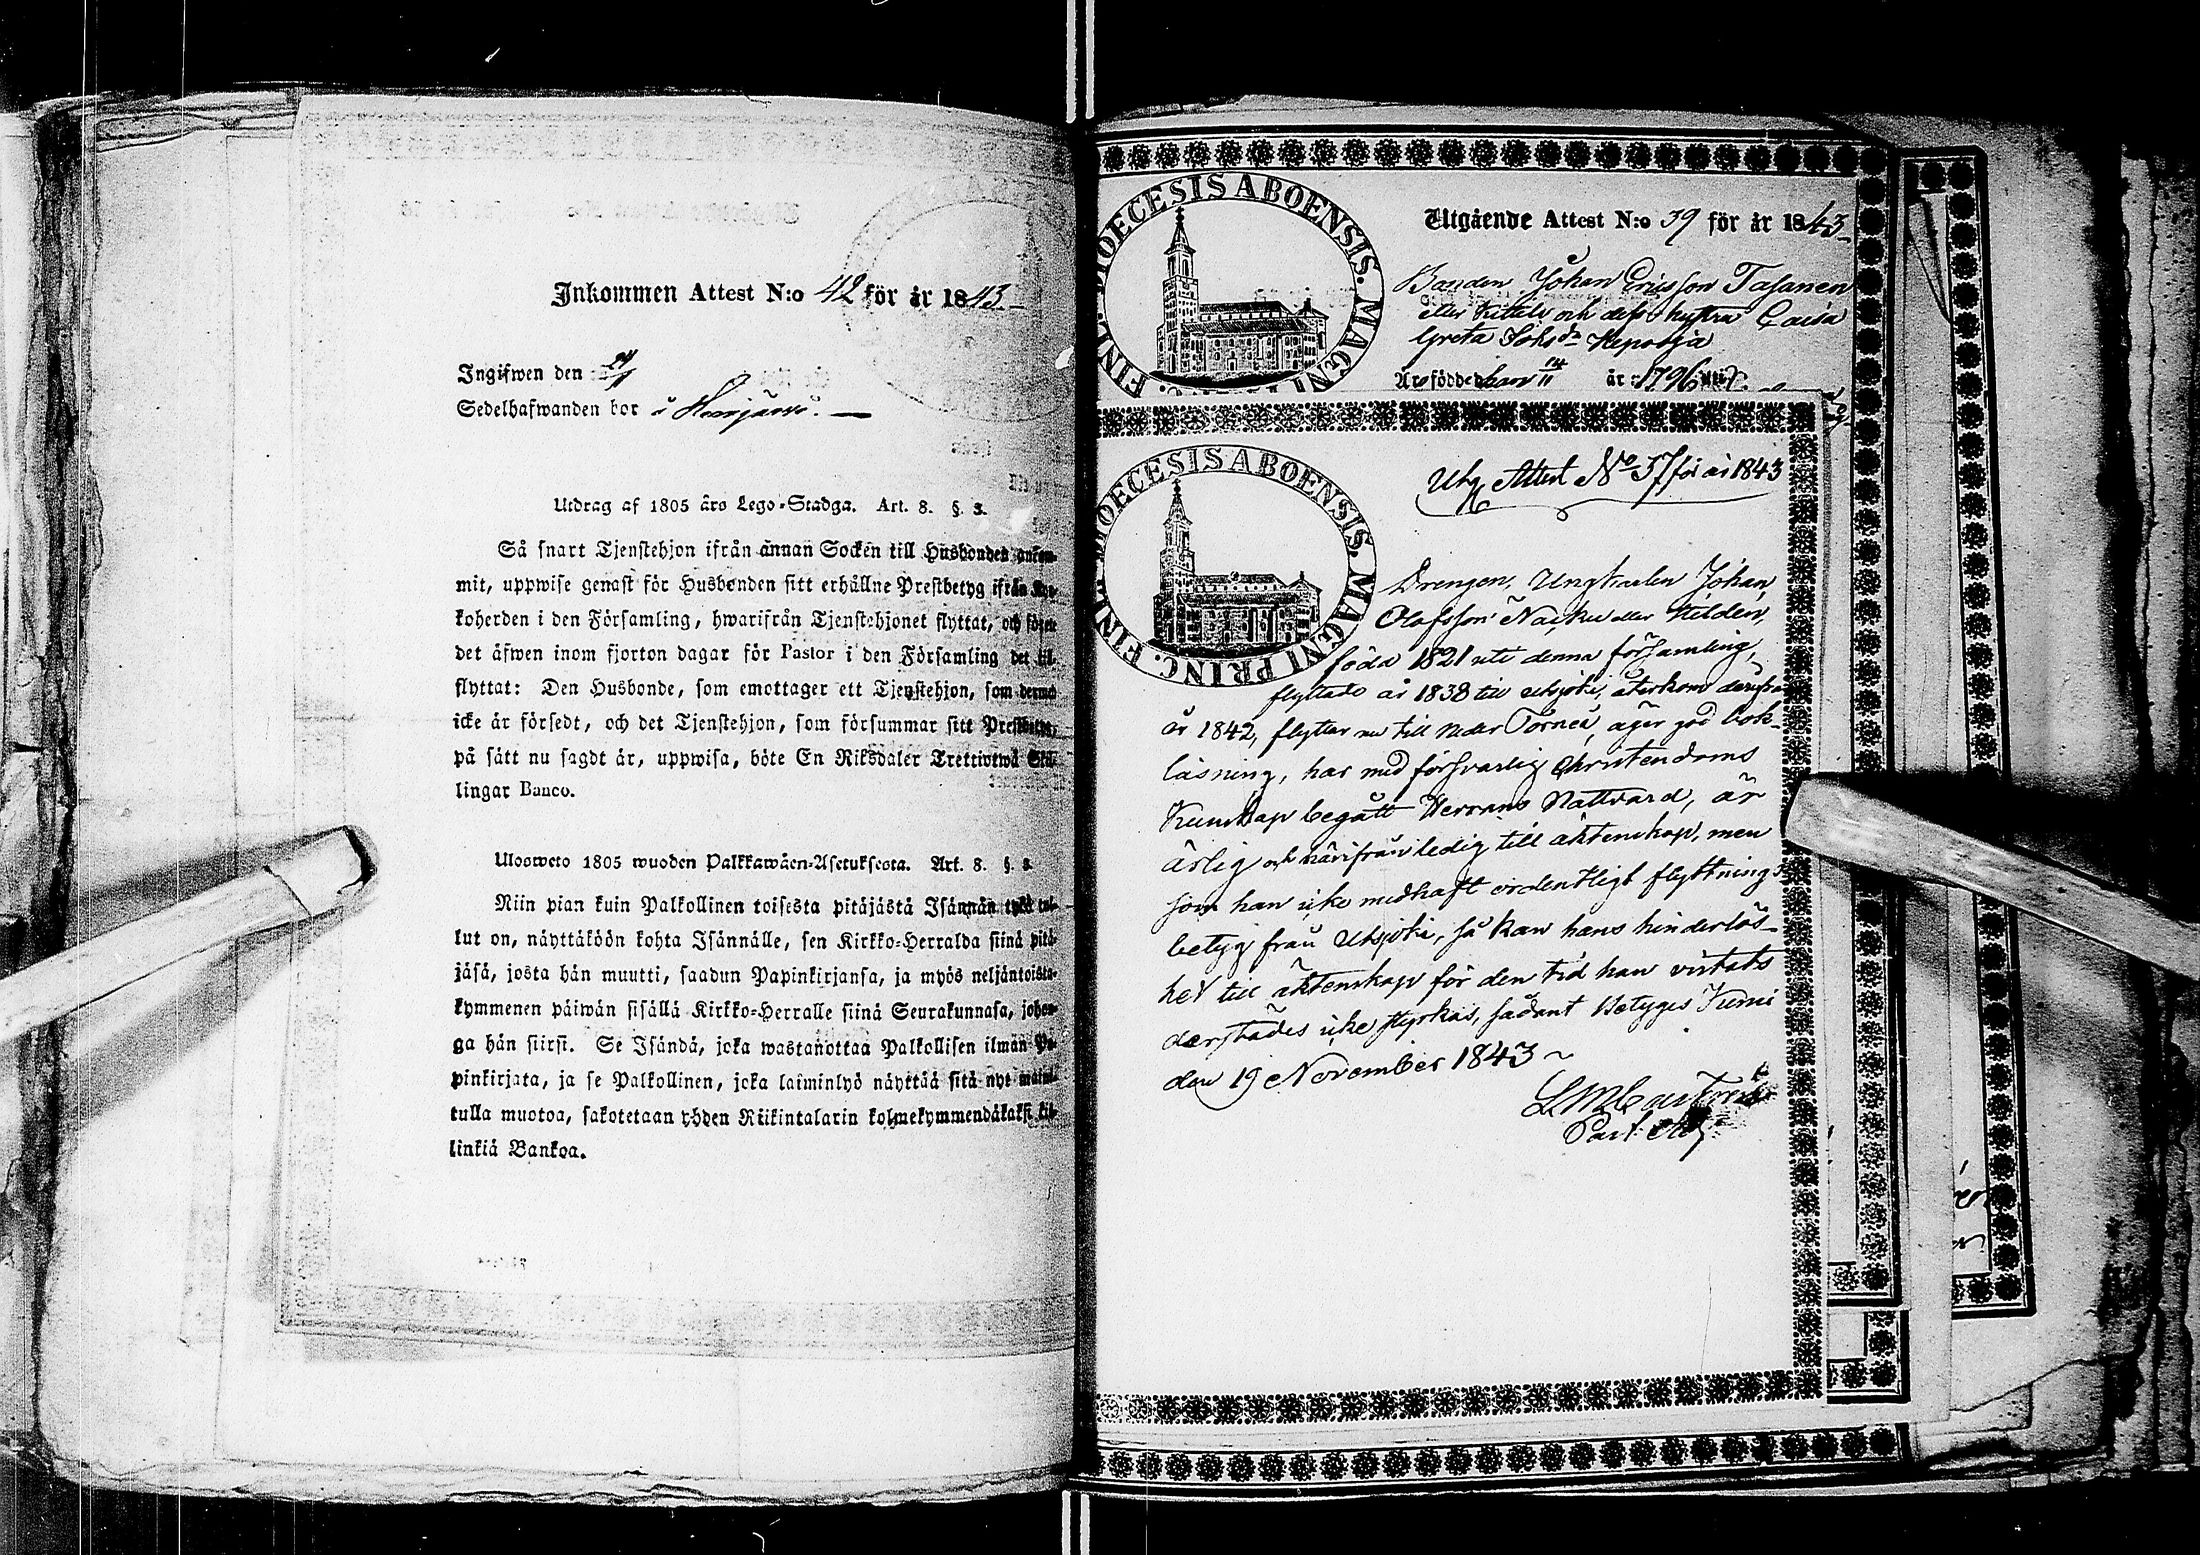 Inkommen Attest N:o 42 för år 1843
Ingifwen den
Sedelhafwanden bor i
Utdrag af 1805 års Lego-Stadga. Art. 8. §. 3.
Så snart Tjenstehjon ifrån annan Socken till Husbonden ankom-
mit, uppwise genast för Husbonden sitt erhållne Prestbetyg ifrån Kyr-
koherden i den Församling, hwarifrån Tjenstehjonet flyttat, och
det äfwen inom fjorton dagar för Pastor i den Församling det till-
flyttat: Den Husbonde, som emottager ett Tjenstehjon, som dermed
icke är försedt, och det Tjenstehjon, som försummar sitt Prestbetyg,
på sätt nu sagdt är, uppwisa, böte En Riksdaler Trettiotwå Skil-
lingar Banco.
Ulosweto 1805 wuoden Palkkawäen-Asetuksesta. Art. 8. §. 3.
Niin pian kuin Palkollinen toisesta pitäjästä Isännän tykö tul-
lut on, näyttäköön kohta Isännälle, sen Kirkko-Herralda siinä pitä-
jäsä, josta hän muutti, saadun Papinkirjansa, ja myös neljäntoista-
kymmenen päiwän sisällä Kirkko-Herralle siinä Seurakunnasa, johon-
ga hän siirsi. Se Isändä, joka wastanottaa Palkollisen ilman Pa-
pinkirjata, ja se Palkollinen, joka laiminlyö näyttää sitä nyt maini-
tulla muotoa, sakotetaan yhden Riikintalarin kolmekymmendäkaksi kil-
linkiä Bankoa.
DIOECESIS ABOENSIS. MAGNI FINL.
Utgående Attest N:o 39 för år 1843
Bonden Johan Ericsson Tasanen
eller Kittilä och dess hustru Caisa
Greta Johsdr
är född den han 14/11 år 1796
DIOECESIS ABOENSIS. MAGNI PRINC. FINL.
Utg Attest No 37 för år 1843
Drengen, Ungkarlen Johan
Olofsson Näcku eller Kilden,
född 1821 uti denna församling,
flyttade år 1838 till Utsjoki, återkom derifrån
år 1842, flyttar nu till Neder Torneå, äger god bok-
läsning, har med försvarlig Christendoms
Kunskap begått Herrans Nattvard, är
ärlig och härifrån ledig till äktenskap, men
som han icke medhaft ordentligt flyttnings
betyg från Utsjoki, så kan hans hinderlös-
het till äktenskap för den tid han vistats
derstädes icke styrkas, sådant betygas Kemi
den 19 November 1843
Past. Adj.